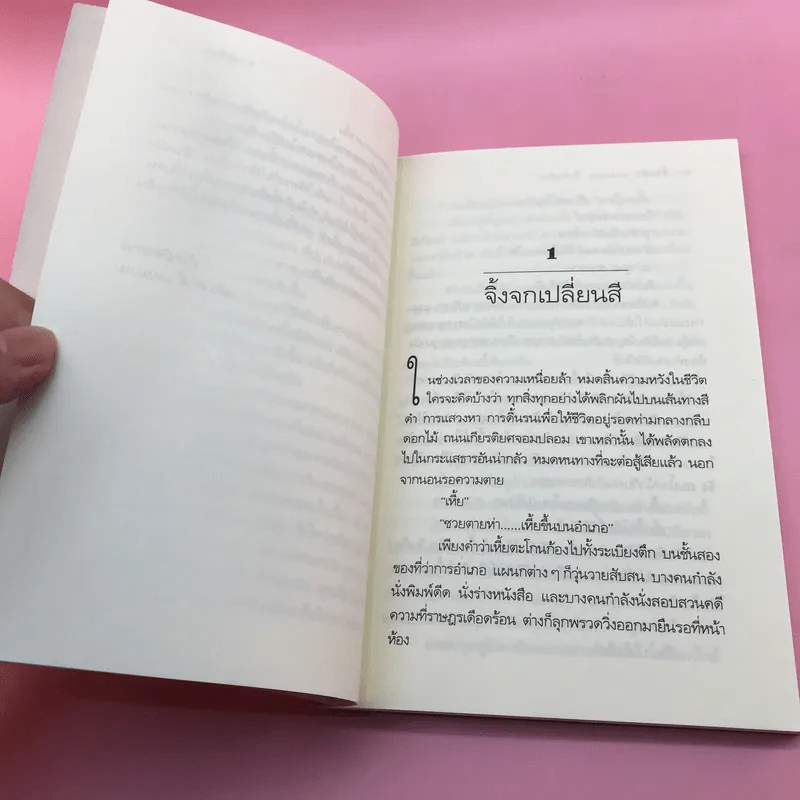 1
จิ้งจกเปลี่ยนสี
ในช่วงเวลาของความเหนื่อยล้า หมดสิ้นความหวังในชีวิต
ใครจะคิดบ้างว่า ทุกสิ่งทุกอย่างได้พลิกผันไปบนเส้นทางสี
ดำ การแสวงหา การดิ้นรนเพื่อให้ชีวิตอยู่รอดท่ามกลางกลีบ
ดอกไม้ ถนนเกียรติยศจอมปลอม เขาเหล่านั้น ได้พลัดตกลง
ไปในกระแสธารอันน่ากลัว หมดหนทางที่จะต่อสู้เสียแล้ว นอก
จากนอนรอความตาย
“เหี้ย”
“ซวยตายห่า......เหี้ยขึ้นบนอำเภอ”
เพียงคำว่าเหี้ยตะโกนก้องไปทั้งระเบียงตึก บนชั้นสอง
ของที่ว่าการอำเภอ แผนกต่าง ๆ ก็วุ่นวายสับสน บางคนกำลัง
นั่งพิมพ์ดีด นั่งร่างหนังสือ และบางคนกำลังนั่งสอบสวนคดี
ความที่ราษฎรเดือดร้อน ต่างก็ลุกพรวดวิ่งออกมายืนรอที่หน้า
ห้อง